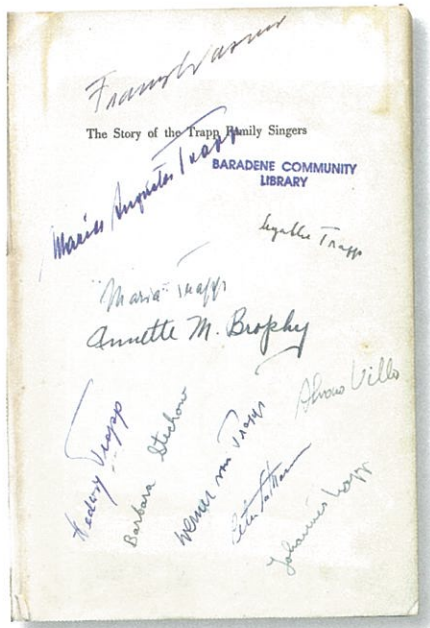 Franz Wasner
The Story of the Trapp Family Singers
Maria Augusta Trapp
BARADENE COMMUNITY
LIBRARY
Agathe Trapp
"Maria" Trapp
Annette M. Brophy
Alvaro Villa
Hedwig Trapp
Barbara Stechow
Werner von Trapp
Johannes Trapp